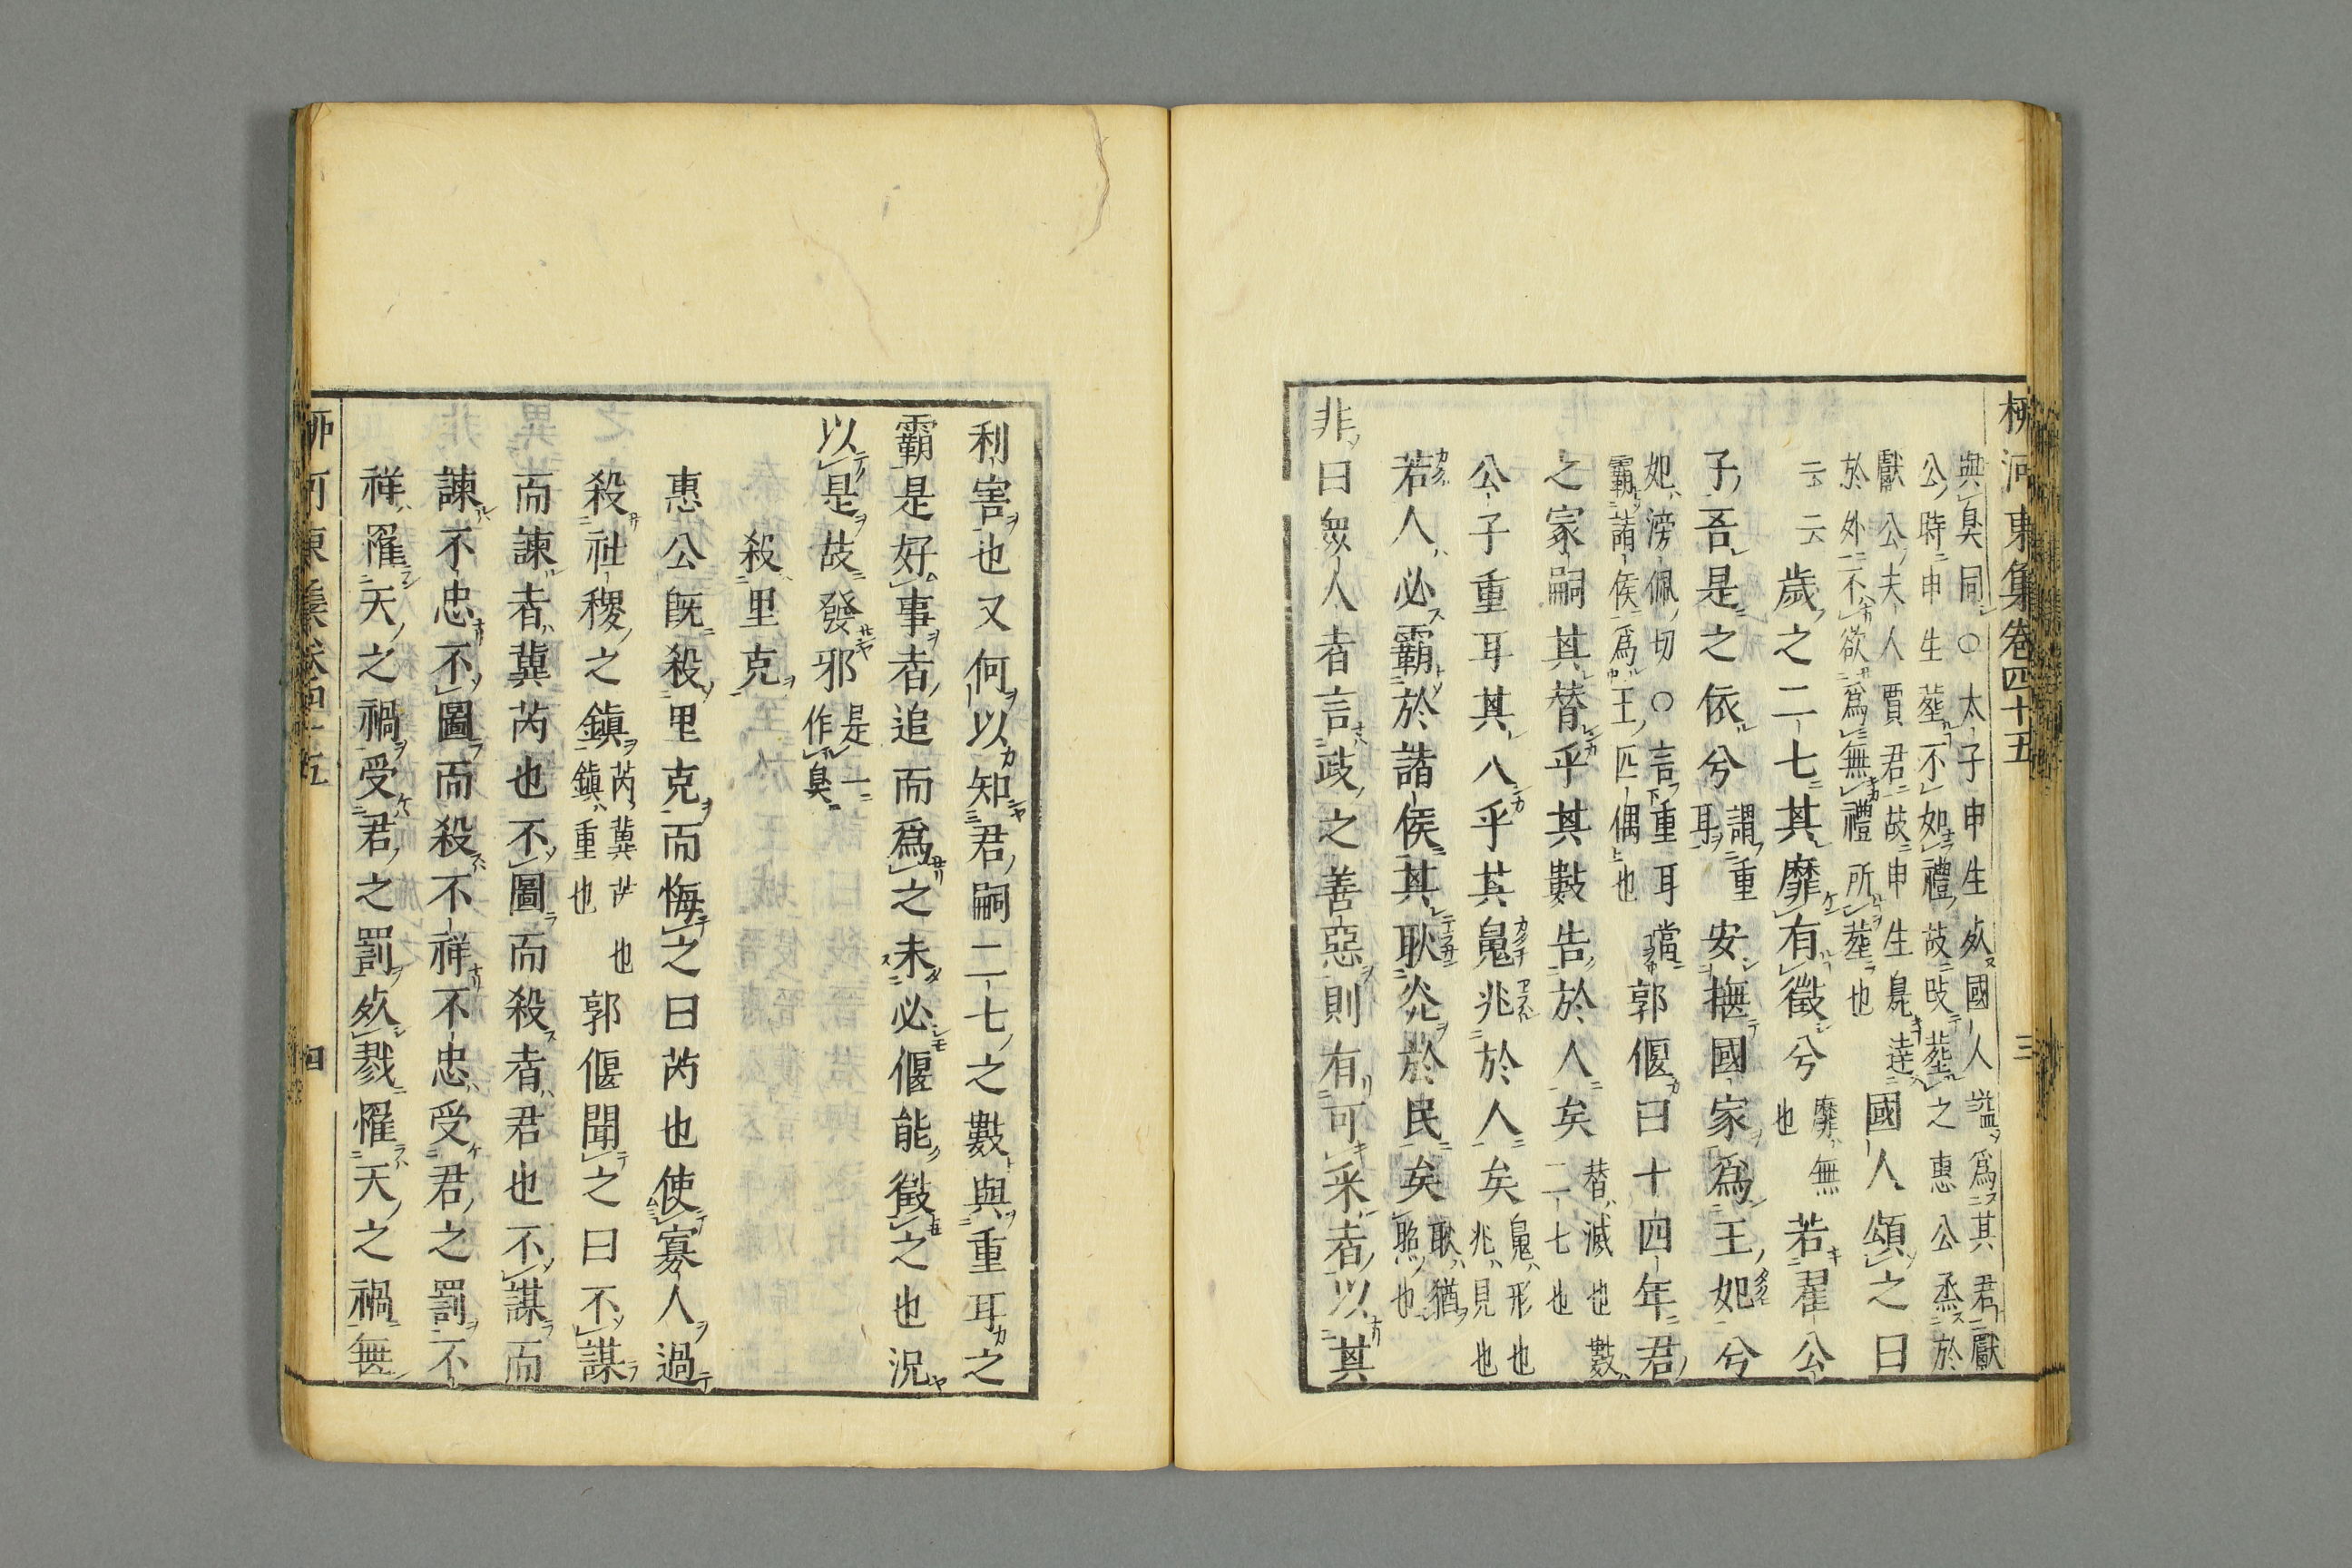 柳河東集卷四十五 三
與臭同○太子申生死國人謚爲其君獻
公時申生葬不如禮故改葬之惠公烝於
獻公夫人賈君故申生臭達
於外不欲爲無禮所葬也
國人頌之曰
云云歲之二七其靡有徵兮
靡無
也
若翟公
子吾是之依兮
謂重
耳
安撫國家爲王妃兮
妃滂佩切○言重耳當
霸諸侯爲王匹偶也
郭偃曰十四年君
之家嗣其替乎其數告於人矣
替滅也數
二七也
公子重耳其入乎其魄兆於人矣
魄形也
兆見也
若人必霸於諸侯其耿光於民矣
耿猶
昭也
非曰衆人者言政之善惡則有可采者以其
利害也又何以知君嗣二七之數與重耳之
霸是好事者追而爲之未必偃能徵之也況
以是故發邪
是一
作臭
殺里克
惠公既殺里克而悔之曰芮也使寡人過
殺社稷之鎮
芮冀芮也
鎮重也
郭偃聞之曰不謀
而諫者冀芮也不圖而殺者君也不謀而
諫不忠不圖而殺不祥不忠受君之罰不
祥罹天之禍受君之罰死戮罹天之禍無
柳河東集卷四十五 四